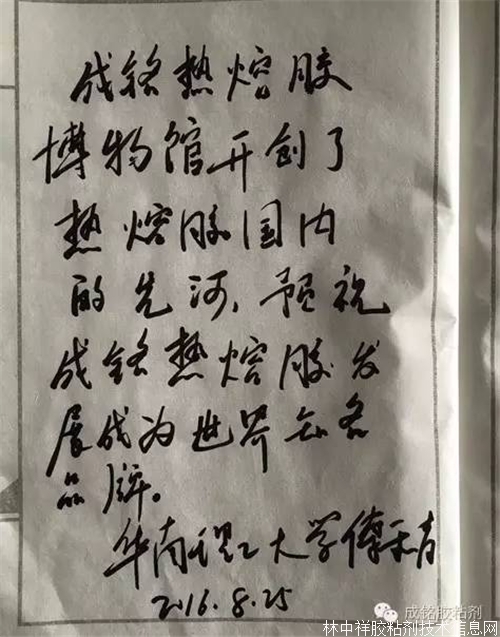 成铭热熔胶
博物馆开创了
热熔胶国内
的先河,预祝
成铭热熔胶发
展成为世界知名
品牌。
华南理工大学傅
2016.8.25
成铭胶粘剂
林中祥胶粘剂技术信息网